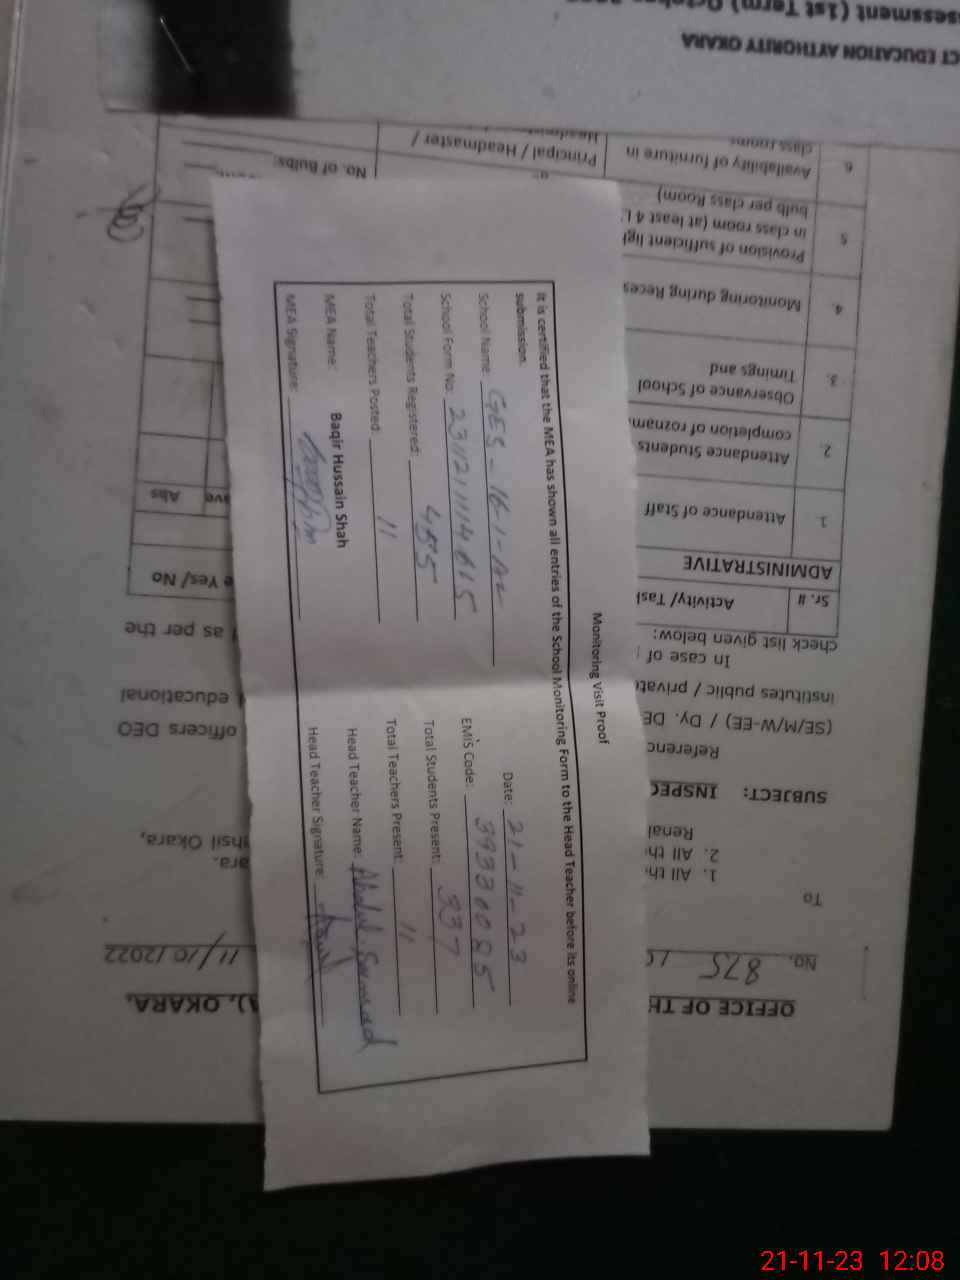 Monitoring Visit Proof
It is certified that the MEA has shown all entries of the School Monitoring Form to the Head Teacher before its online
submission.
School Name: GES - 16-1-AL Date: 21-11-23
School Form No: EMIS Code: 39330085
Total Students Registered: 485 Total Students Present: 337
Total Teachers Posted: 11 Total Teachers Present: 11
MEA Name: Baqir Hussain Shah Head Teacher Name: Abdul Samad
MEA Signature: Head Teacher Signature:
OFFICE OF TH A), OKARA.
No. 875 11/10/2022
To
1. All th ara.
2. All th hsil Okara,
Renal
SUBJECT: INSPEC
Referenc officers DEO
(SE/M/W-EE) / Dy. DE educational
institutes public / private
In case of as per the
check list given below:
Sr. # Activity/ Task e Yes/ No
ADMINISTRATIVE
1. Attendance of Staff ave Abs
2. Attendance Students
completion of roznam
3. Observance of School
Timings and
4. Monitoring during Reces
5 Provision of sufficient ligh
in class room (at least 4 L
bulb per class Room)
No. of Bulbs:
6. Availability of furniture in Principal / Headmaster /
class rooms
CT EDUCATION AYTHORITY OKARA
ssessment (1st Term) October
21-11-23 12:08